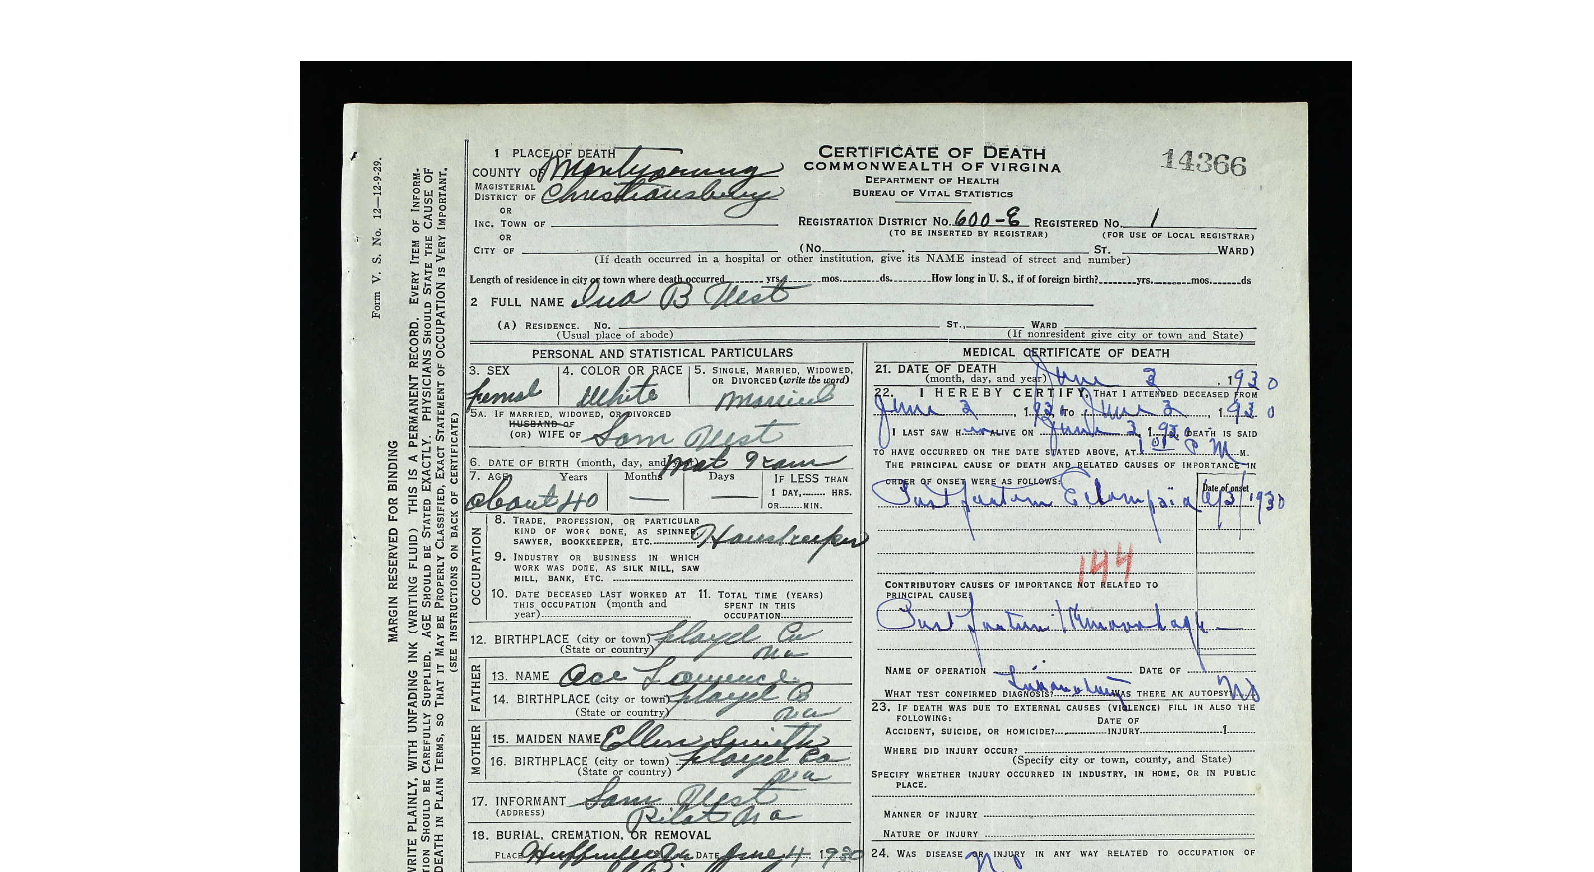 Form V. S. No. 12—12-9-29.
MARGIN RESERVED FOR BINDING
WRITE PLAINLY, WITH UNFADING INK (WRITING FLUID) THIS IS A PERMANENT RECORD. EVERY ITEM OF INFORM-
TION SHOULD BE CAREFULLY SUPPLIED. AGE SHOULD BE STATED EXACTLY. PHYSICIANS SHOULD STATE THE CAUSE OF
DEATH IN PLAIN TERMS, SO THAT IT MAY BE PROPERLY CLASSIFIED. EXACT STATEMENT OF OCCUPATION IS VERY IMPORTANT.
(SEE INSTRUCTIONS ON BACK OF CERTIFICATE)
CERTIFICATE OF DEATH
COMMONWEALTH OF VIRGINIA
DEPARTMENT OF HEALTH
BUREAU OF VITAL STATISTICS
14366
1 PLACE OF DEATH
COUNTY OF Montgomery
MAGISTERIAL DISTRICT OF Christiansburg
OR
INC. TOWN OF
OR
CITY OF
REGISTRATION DISTRICT No. 600-E REGISTERED No. 1
(TO BE INSERTED BY REGISTRAR) (FOR USE OF LOCAL REGISTRAR)
(No. ST. WARD)
(If death occurred in a hospital or other institution, give its NAME instead of street and number)
Length of residence in city or town where death occurred yrs. mos. ds. How long in U. S., if of foreign birth? yrs. mos. ds
2 FULL NAME B West
(A) RESIDENCE. No. ST., WARD
(Usual place of abode) (If nonresident give city or town and State)
PERSONAL AND STATISTICAL PARTICULARS
3. SEX
female
4. COLOR OR RACE
White
5. SINGLE, MARRIED, WIDOWED, OR DIVORCED (write the word)
Married
5A. IF MARRIED, WIDOWED, OR DIVORCED
HUSBAND OF
(OR) WIFE OF Sam West
6. DATE OF BIRTH (month, day, and year)
7. AGE Years Months Days IF LESS THAN
1 DAY, HRS.
OR MIN.
about 40 — —
OCCUPATION
8. TRADE, PROFESSION, OR PARTICULAR
KIND OF WORK DONE, AS SPINNER,
SAWYER, BOOKKEEPER, ETC. Housekeeper
9. INDUSTRY OR BUSINESS IN WHICH
WORK WAS DONE, AS SILK MILL, SAW
MILL, BANK, ETC.
10. DATE DECEASED LAST WORKED AT
THIS OCCUPATION (month and
year)
11. TOTAL TIME (YEARS)
SPENT IN THIS
OCCUPATION
12. BIRTHPLACE (city or town) Floyd Co
(State or country) Va
FATHER
13. NAME
14. BIRTHPLACE (city or town) Floyd Co
(State or country) Va
MOTHER
15. MAIDEN NAME Ellen Smith
16. BIRTHPLACE (city or town) Floyd Co
(State or country) Va
17. INFORMANT Sam West
(ADDRESS) Pilot Va
18. BURIAL, CREMATION, OR REMOVAL
PLACE DATE June 4 1930
MEDICAL CERTIFICATE OF DEATH
21. DATE OF DEATH
(month, day, and year) June 3, 1930
22. I HEREBY CERTIFY, THAT I ATTENDED DECEASED FROM
June 3, 1930, TO June 3, 1930
I LAST SAW H ALIVE ON June 3, 1930 DEATH IS SAID
TO HAVE OCCURRED ON THE DATE STATED ABOVE, AT P M.
THE PRINCIPAL CAUSE OF DEATH AND RELATED CAUSES OF IMPORTANCE IN
ORDER OF ONSET WERE AS FOLLOWS: Date of onset
Post partum Eclampsia 6/3/1930
144
CONTRIBUTORY CAUSES OF IMPORTANCE NOT RELATED TO
PRINCIPAL CAUSE:
Post partum Hemorrhage
NAME OF OPERATION DATE OF
WHAT TEST CONFIRMED DIAGNOSIS? WAS THERE AN AUTOPSY? No
23. IF DEATH WAS DUE TO EXTERNAL CAUSES (VIOLENCE) FILL IN ALSO THE
FOLLOWING:
DATE OF
ACCIDENT, SUICIDE, OR HOMICIDE? INJURY 1
WHERE DID INJURY OCCUR?
(Specify city or town, county, and State)
SPECIFY WHETHER INJURY OCCURRED IN INDUSTRY, IN HOME, OR IN PUBLIC
PLACE.
MANNER OF INJURY
NATURE OF INJURY
24. WAS DISEASE OR INJURY IN ANY WAY RELATED TO OCCUPATION OF
No